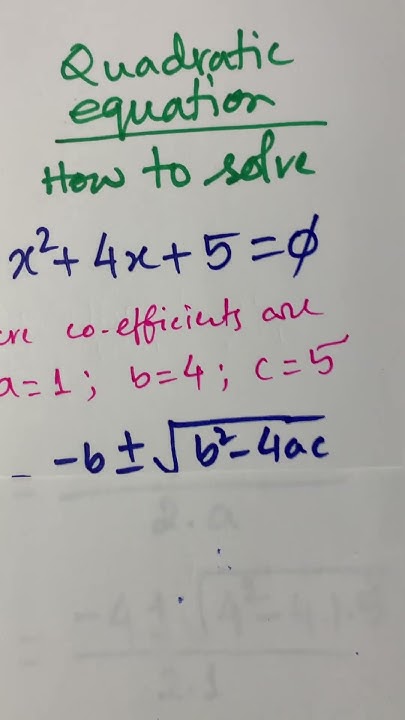 Quadratic
equation
How to solve
x²+ 4x + 5 = 0
co-efficients are
a=1; b=4; c=5
-b ± √b²-4ac
2.a
= -4 ± √4²-4.1.5
2.1